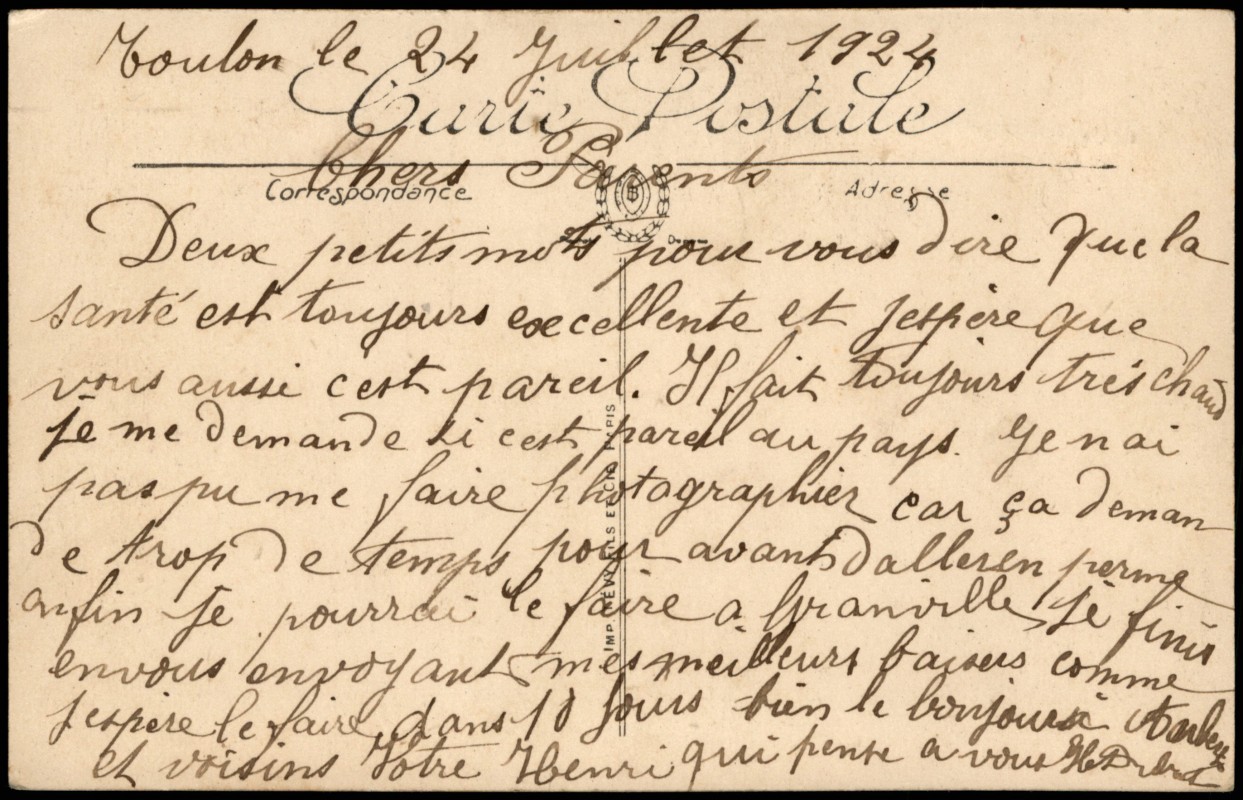 Toulon le 24 Juillet 1924
Carte Postale
Chers Parents
Correspondance
Adresse
Deux petits mots pour vous dire que la
santé est toujours excellente et jespère que
vous aussi cest pareil. Il fait toujours très chaud
je me demande si cest pareil au pays. Je nai
pas pu me faire photographier car ça deman
de trop de temps pour avant daller en perme
enfin je pourrai le faire a Granville, je finis
en vous envoyant mes meilleurs baisers comme
jespère le faire dans 10 jours bien le bonjour a
et voisins Votre Henri qui pense a vous
IMP. NEVEU FILS ET CIE PARIS